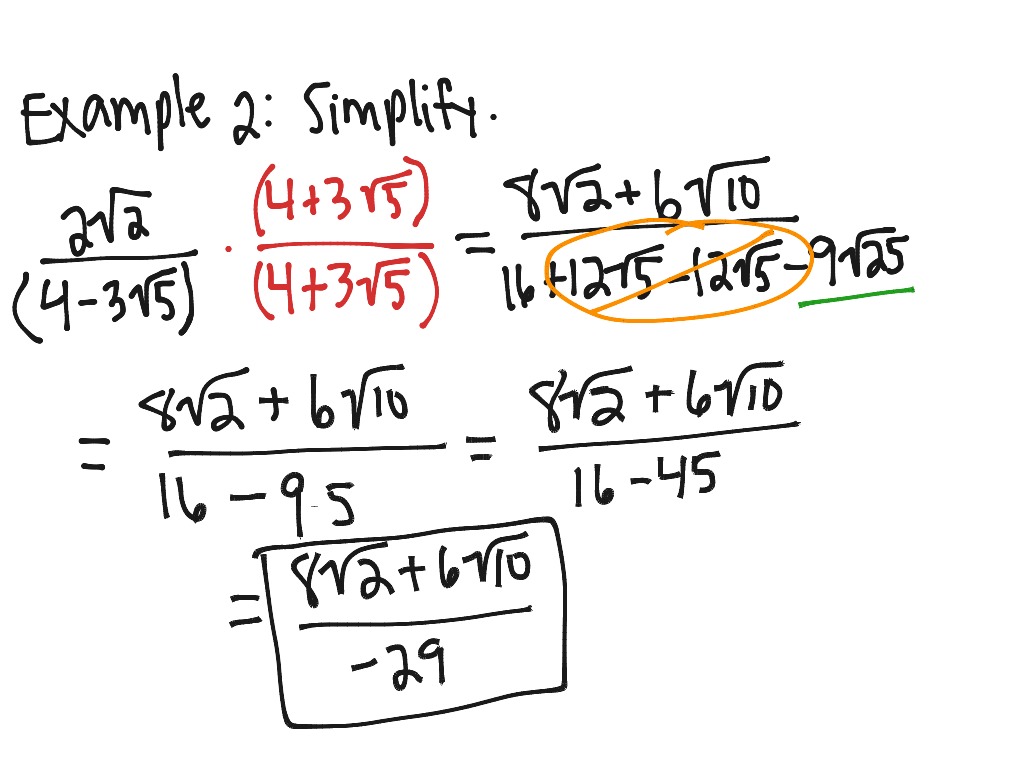 Example 2: Simplify.
2√2 / (4-3√5) · (4+3√5) / (4+3√5) = 8√2 + 6√10 / 16 +12√5 -12√5 -9√25
= 8√2 + 6√10 / 16 - 9·5 = 8√2 + 6√10 / 16 - 45
= 8√2 + 6√10 / -29